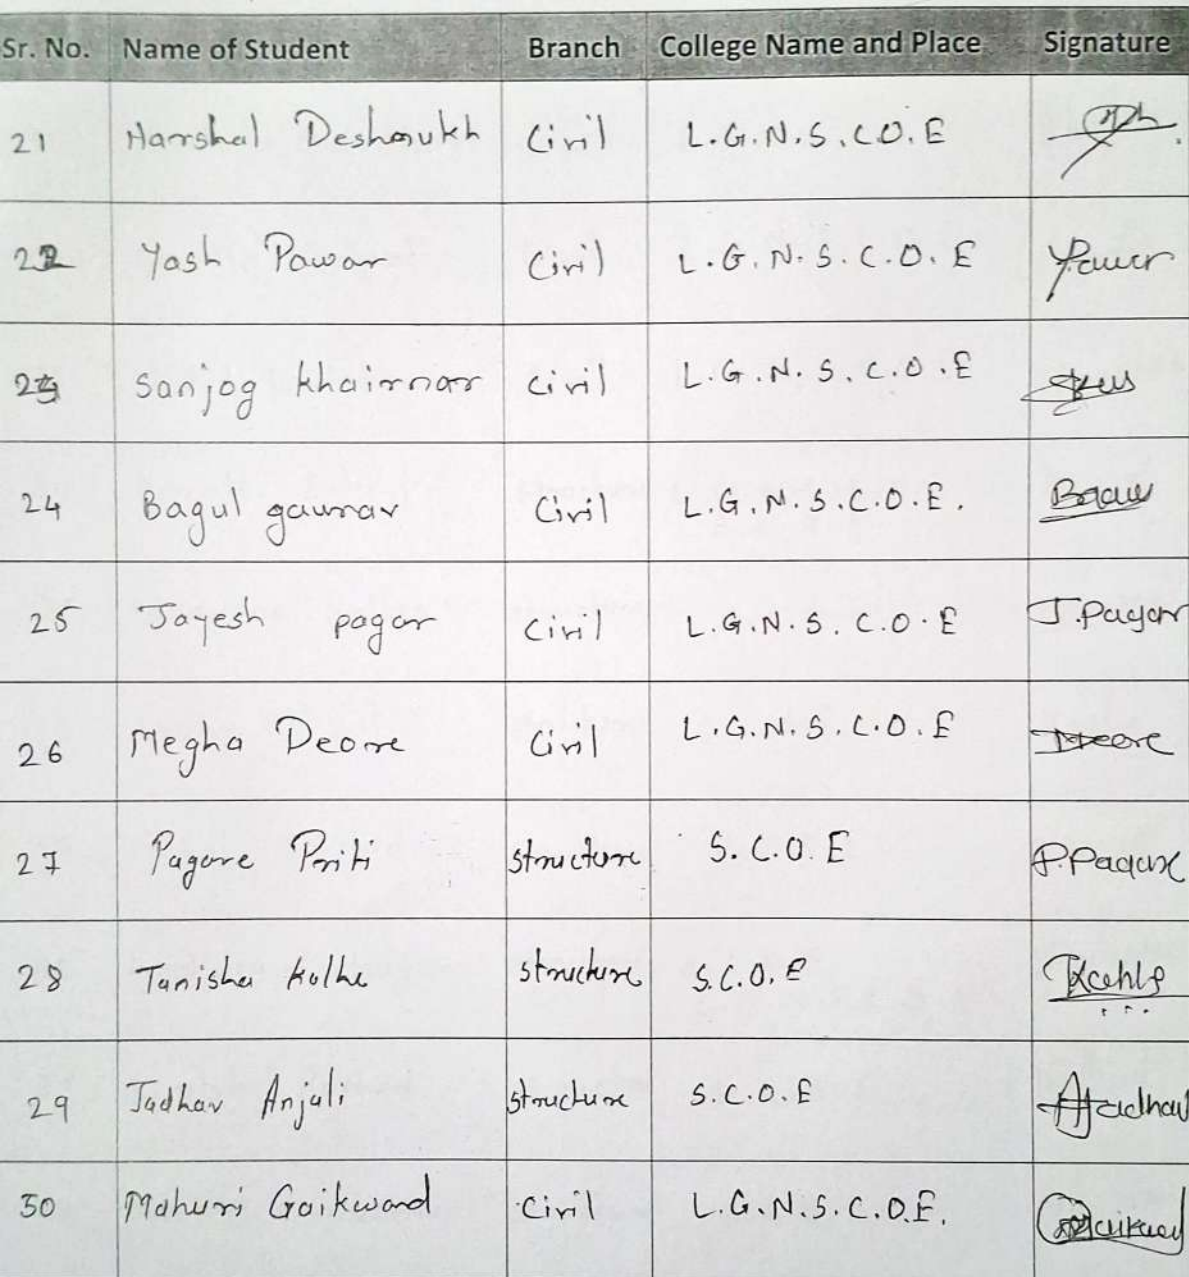 Sr. No. Name of Student Branch College Name and Place Signature
21 Harshal Deshmukh Civil L.G.N.S.C.O.E
22 Yash Pawar Civil L.G.N.S.C.O.E Pawar
23 Sanjog khairnar Civil L.G.N.S.C.O.E
24 Bagul gaurav Civil L.G.N.S.C.O.E.
25 Jayesh pagar Civil L.G.N.S.C.O.E J.Pagar
26 Megha Deore Civil L.G.N.S.C.O.E Deore
27 Pagare Priti structure S.C.O.E P.Pagare
28 Tanisha kolhe structure S.C.O.E
29 Jadhav Anjali structure S.C.O.E AJadhav
30 Mahuri Gaikwad Civil L.G.N.S.C.O.E.